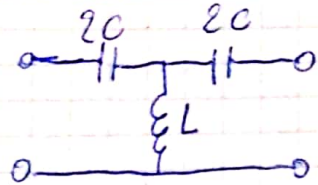 2C 2C
L